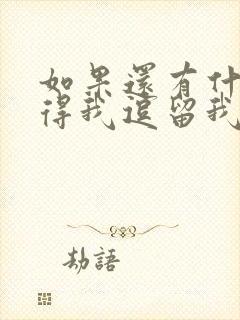 如果還有什
得我逗留我
劫語